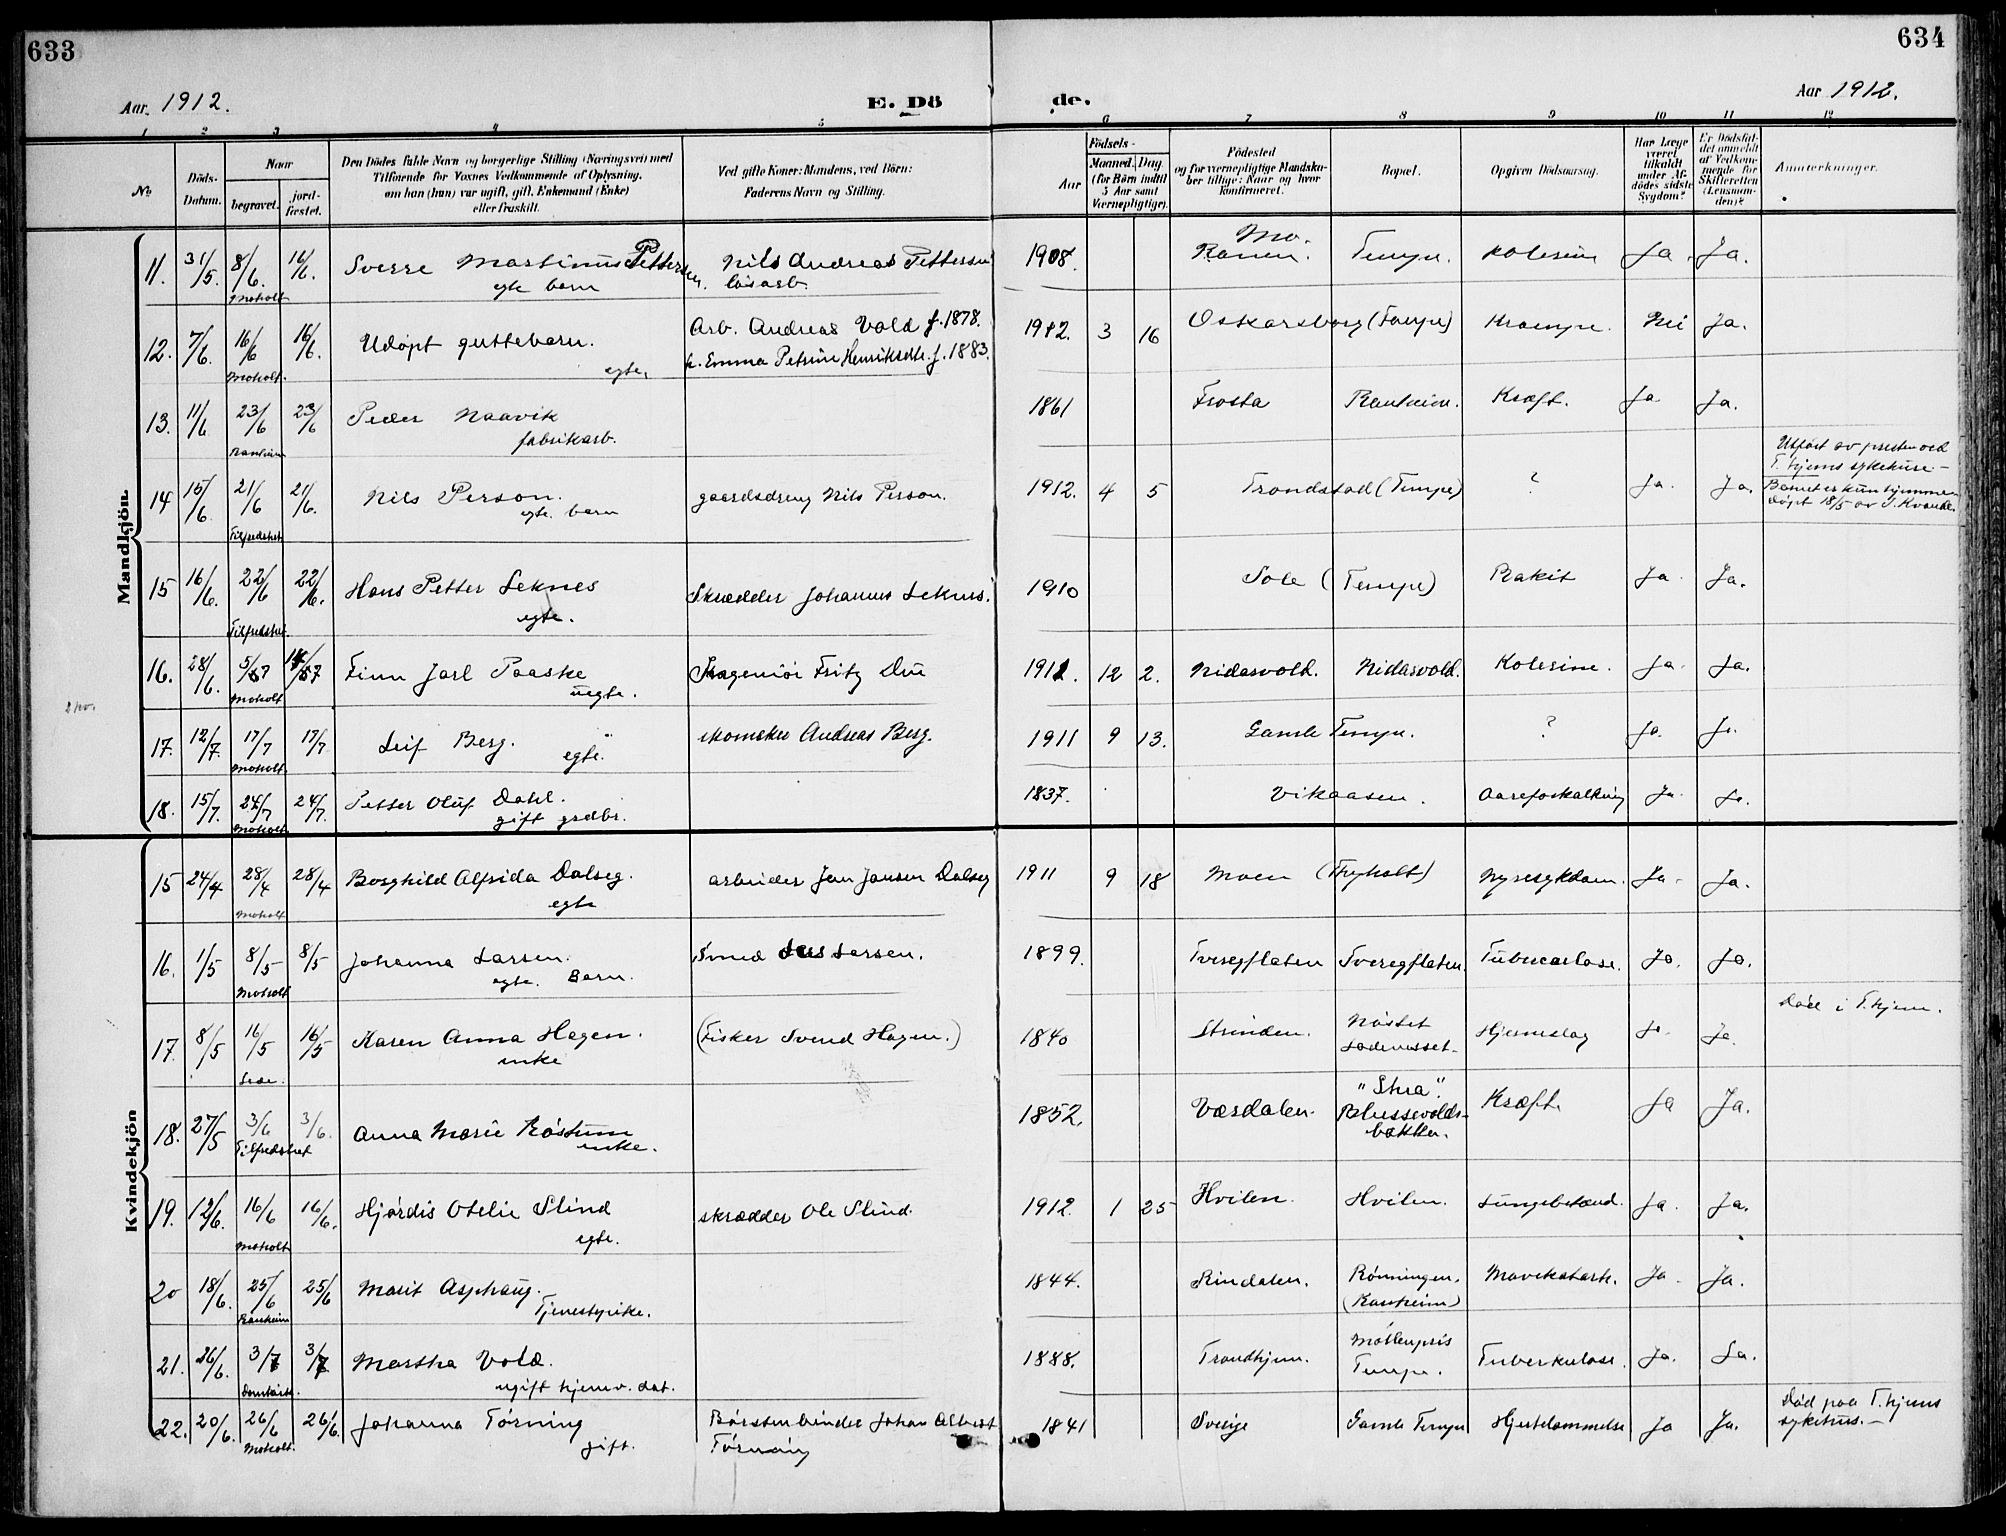 633
634
Aar. 1912.
E. Dö
de.
Aar 1912.
1 2 3 4 5 6 7 8 9 10 11 12
No
Döds-
Datum.
Naar
begravet.
jord-
fæstet.
Den Dödes fulde Navn og borgerlige Stilling (Næringsvei) med
Tilföiende for Voxnes Vedkommende af Oplysning,
om han (hun) var ugift, gift, Enkemand (Enke)
eller fraskilt.
Ved gifte Koner: Mandens, ved Börn:
Faderens Navn og Stilling.
Födsels-
Aar
Maaned. Dag.
(for Börn indtil
5 Aar samt
Værnepligtige).
Födested
og for værnepligtige Mandska-
ber tillige: Naar og hvor
konfirmeret.
Bopæl.
Opgiven Dödsaarsag.
Har Læge
været
tilkaldt
under Af-
dödes sidste
Sygdom?
Er Dödsfal-
det anmeldt
af Vedkom-
mende for
Skifteretten
(Lensman-
den)?
Anmærkninger.
Mandkjön
11. 31/5. 8/6. 16/6. Sverre Martinus Pettersen. Nils Andreas Pettersen 1908. Mo. Ranen. Tempe. Kolerine Ja. Ja.
Moholt egte barn løsarb.
12. 7/6. 16/6 16/6. Udøpt guttebarn. Arb. Andreas Vold f. 1878. 1912. 3 16 Oskarsborg (Tempe) Krampe. Nei Ja.
Moholt. egte. h. Emma Petrine Henriksdtr. f. 1883.
13. 11/6 23/6 23/6 Peder Naavik 1861 Frosta Ranheim. Kræft. Ja Ja.
Ranheim fabrikarb.
14 15/6. 21/6 21/6. Nils Person. gaardsdreng Nils Person. 1912. 4 5 Trondstad (Tempe) ? Ja. Ja.
Tilfredshet egte barn
Utført av presten ved
T.hjems sykehuse.-
Barnet er kun hjemme
døpt 18/5 av J. Kvande.
15 16/6. 22/6 22/6. Hans Petter Leknes Skrædder Johannes Leknes. 1910 Sole (Tempe) Rakit Ja. Ja.
Tilfredshet. egte.
16. 28/6. 5/7 Finn Jarl Paaske Fritz Due 1911. 12 2. Nidarvold. Nidarvold. Kolerine. Ja. Ja.
Moholt uegte.
17. 12/7. 17/7 17/7 Leif Berg. skomaker Andreas Berg. 1911 9 13. Gamle Tempe. ? Ja. Ja.
Moholt egte.
18. 15/7. 24/7 24/7. Petter Oluf Dahl. 1837. Vikaasen. Aareforkalkning Ja. Ja.
Moholt gift grdbr.
Kvindekjön
15 24/4 28/4 28/4 Borghild Alfrida Dalseg. arbeider Jon Jonsen Dalseg 1911 9 18 Moen (Thyholt) Nyresykdom. Ja. Ja.
Moholt egte
16. 1/5 8/5 8/5 Johanna Larsen. Smed Lars Larsen. 1899. Tveregflaten Tveregflaten. Tuberculose. Ja. Ja.
Moholt egte. Barn.
17. 8/5 16/5 16/5 Karen Anna Hagen. (Fisker Svend Hagen.) 1840 Strinden. Nøsset Hjerneslag Ja. Ja. Død i T.hjem.
Lade. enke Ladenesset.
18. 27/5 3/6 3/6. Anna Marie Røstum 1852. Værdalen. "Stua". Kræft. Ja Ja.
Tilfredshet enke. bakken.
19. 12/6. 16/6 16/6. Hjørdis Otelie Slind skrædder Ole Slind. 1912. 1 25 Hvilen. Hvilen. Lungebetænd. Ja. Ja.
Moholt egte.
20 18/6. 25/6 25/6 Marit Asphaug. 1844. Rindalen. Rønningen. Mavekatarh. Ja. Ja.
Ranheim Tjenestepike. (Ranheim)
21. 26/6. 3/7 3/7 Martha Vold. 1888. Trondhjem. Møllenpris Tuberkulose. Ja. Ja.
Domkirk. ugift hjemv. dat. Tempe.
22. 20/6. 26/6 26/6. Johanna Tørning Børstenbinder Johan Albert 1841 Sverige Gamle Tempe Hjertelammelse Ja Ja. Død paa T.hjems
Moholt. gift. Tørning sykehus.-